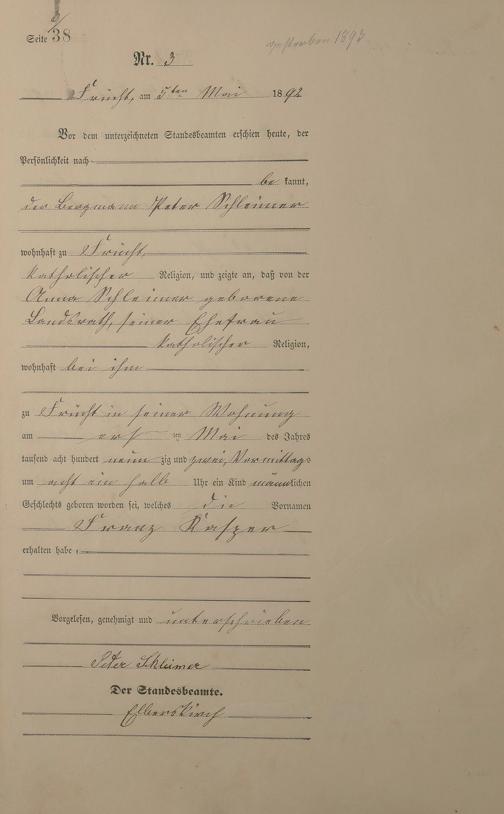 Seite 38
gestorben 1893
Nr. 3
Frücht, am 5ten Mai 1892
Vor dem unterzeichneten Standesbeamten erschien heute, der
Persönlichkeit nach
be kannt,
der Bergmann Peter Schleimer
wohnhaft zu Frücht,
katholischer Religion, und zeigte an, daß von der
Anna Schleimer geborene
Landsrath, seiner Ehefrau
katholischer Religion,
wohnhaft bei ihm
zu Frücht in seiner Wohnung
am ersten Mai des Jahres
tausend acht hundert neunzig und zwei, Vormittags
um acht ein halb Uhr ein Kind männlichen
Geschlechts geboren worden sei, welches die Vornamen
Franz Kasper
erhalten habe
Vorgelesen, genehmigt und unterschrieben
Peter Schleimer
Der Standesbeamte.
Elberskirch